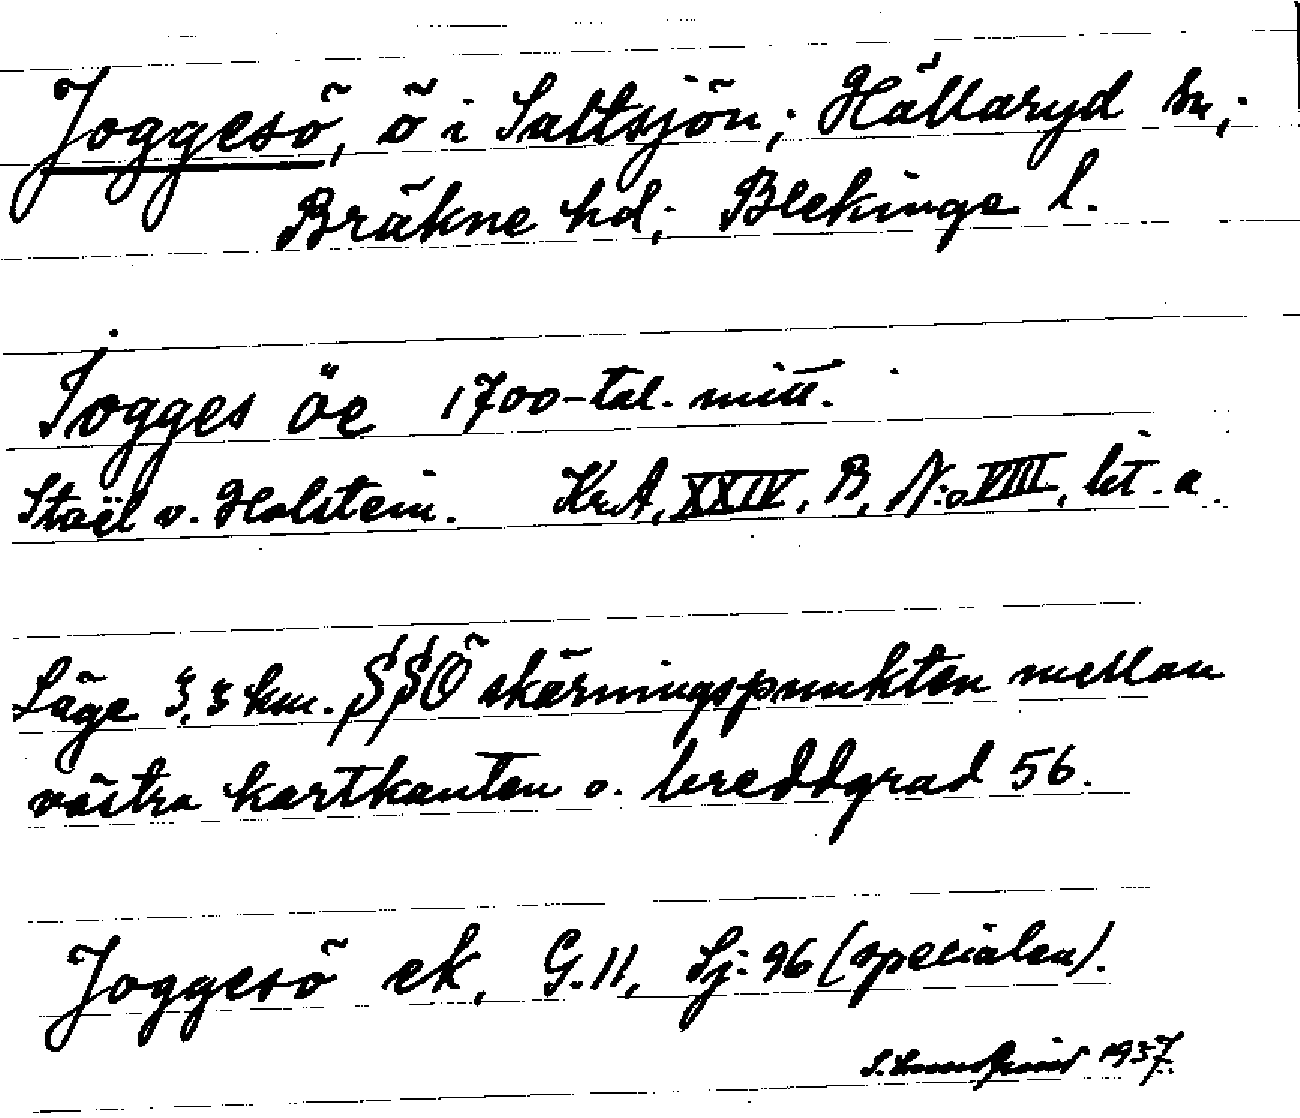 Joggesö, ö i Saltsjön; Hällaryd sn,;
Bräkne hd; Blekinge l.
Jogges öe 1700-tal. mitt.
Staël v. Holstein. Kr.A, XXIV, B, N:o VIII, lit. a.
Läge 3,3 km. SSÖ skärningspunkten mellan
västra kartkanten o. breddgrad 56.
Joggesö ek, G.11, Sj: 96 (specialen).
1937